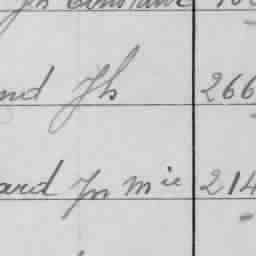 Jh Constant
nd Jh 266
ard Jn mie 214